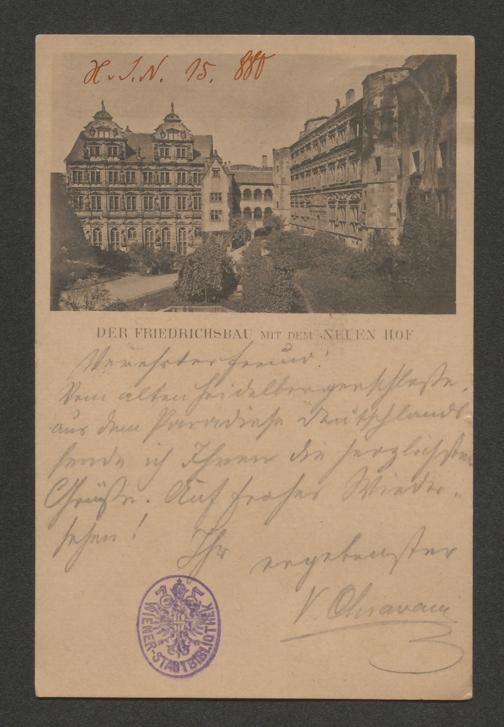 H.I.N. 15. 880
DER FRIEDRICHSBAU MIT DEM NEUEN HOF
Verehrter Freund!
Vom alten Heidelbergerschloße,
aus dem Paradiese Deutschlands
sende ich Ihnen die herzlichsten
Grüße. Auf frohes Wieder-
sehen!
Ihr ergebenster
V.
WIENER-STADTBIBLIOTHEK